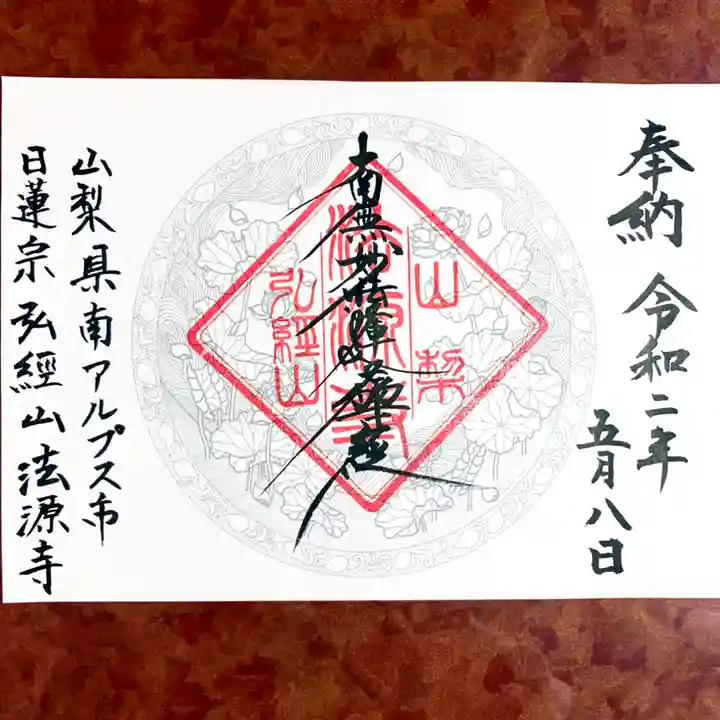 奉納 令和二年
五月八日
南無妙法蓮華経
山梨
法源寺
弘経山
山梨県南アルプス市
日蓮宗 弘經山 法源寺